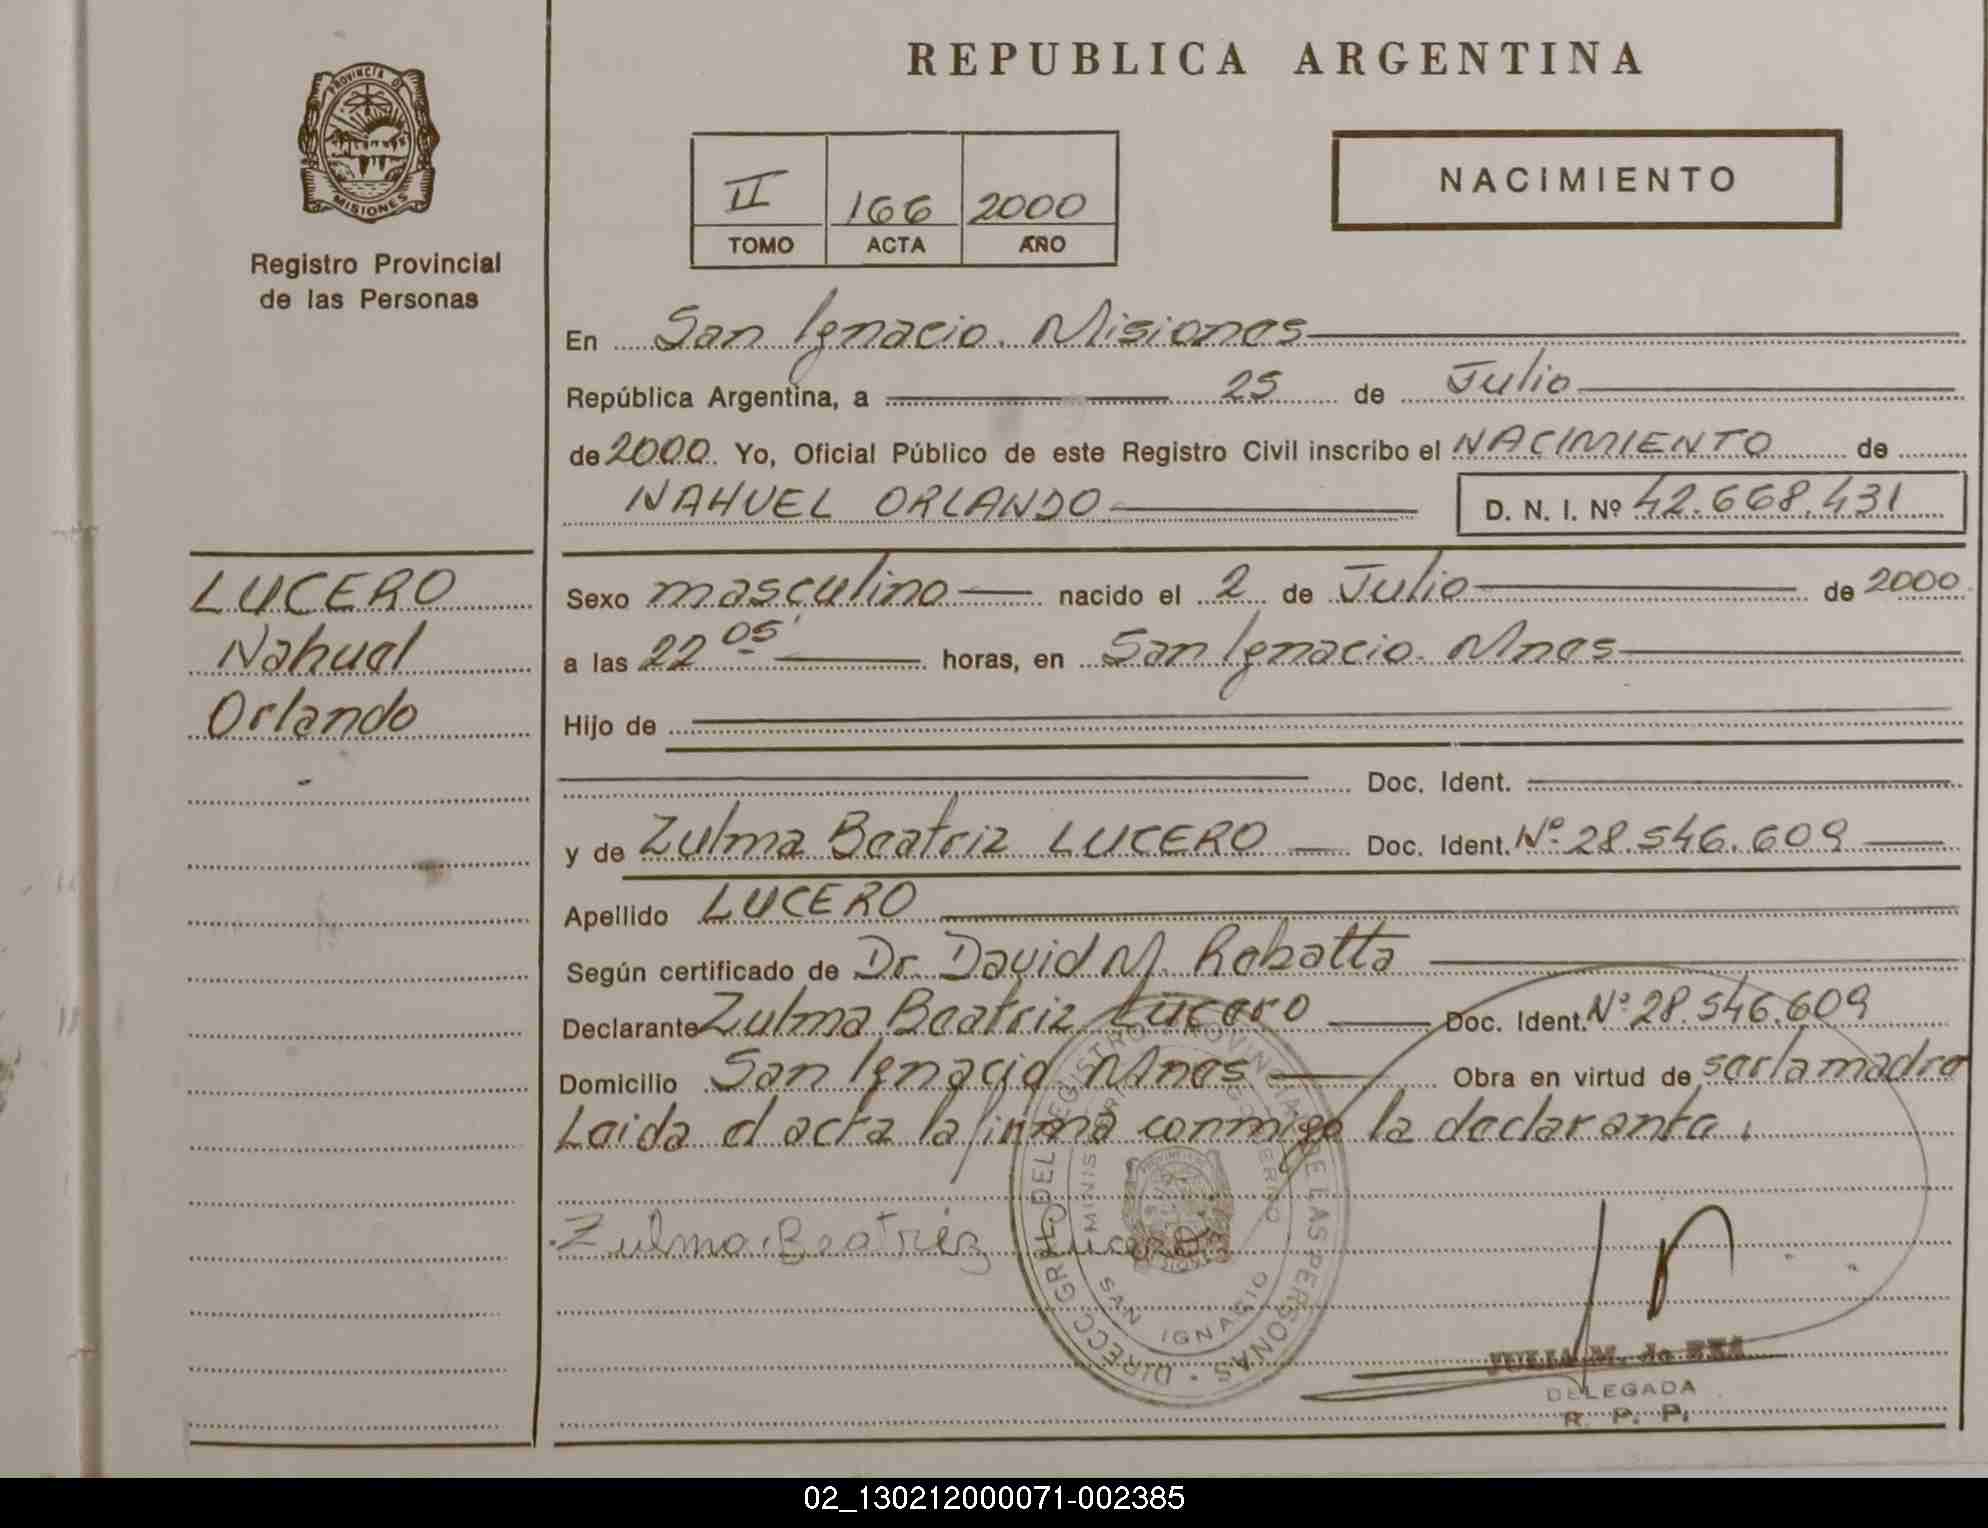 REPUBLICA ARGENTINA
PROVINCIA DE
MISIONES
Registro Provincial
de las Personas
II 166 2000
TOMO ACTA AÑO
NACIMIENTO
En San Ignacio. Misiones
República Argentina, a 25 de Julio
de 2000. Yo, Oficial Público de este Registro Civil inscribo el NACIMIENTO de
NAHUEL ORLANDO D. N. I. Nº 42.668.431
LUCERO
Nahuel
Orlando
Sexo masculino nacido el 2 de Julio de 2000
a las 22 05' horas, en San Ignacio. Mnes
Hijo de
Doc. Ident.
y de Zulma Beatriz LUCERO Doc. Ident. Nº 28.546.609
Apellido LUCERO
Según certificado de Dr. David M.
Declarante Zulma Beatriz Lucero Doc. Ident. Nº 28.546.609
Domicilio San Ignacio Mnes Obra en virtud de ser la madre
Leida el acta la firma conmigo la declarante.
Zulma Beatriz Lucero
DIRECC. GRAL. DEL REGISTRO PROVINCIAL DE LAS PERSONAS
MINISTERIO GOBIERNO
SAN IGNACIO
JULIA M. de
DELEGADA
R. P. P.
02_130212000071-002385